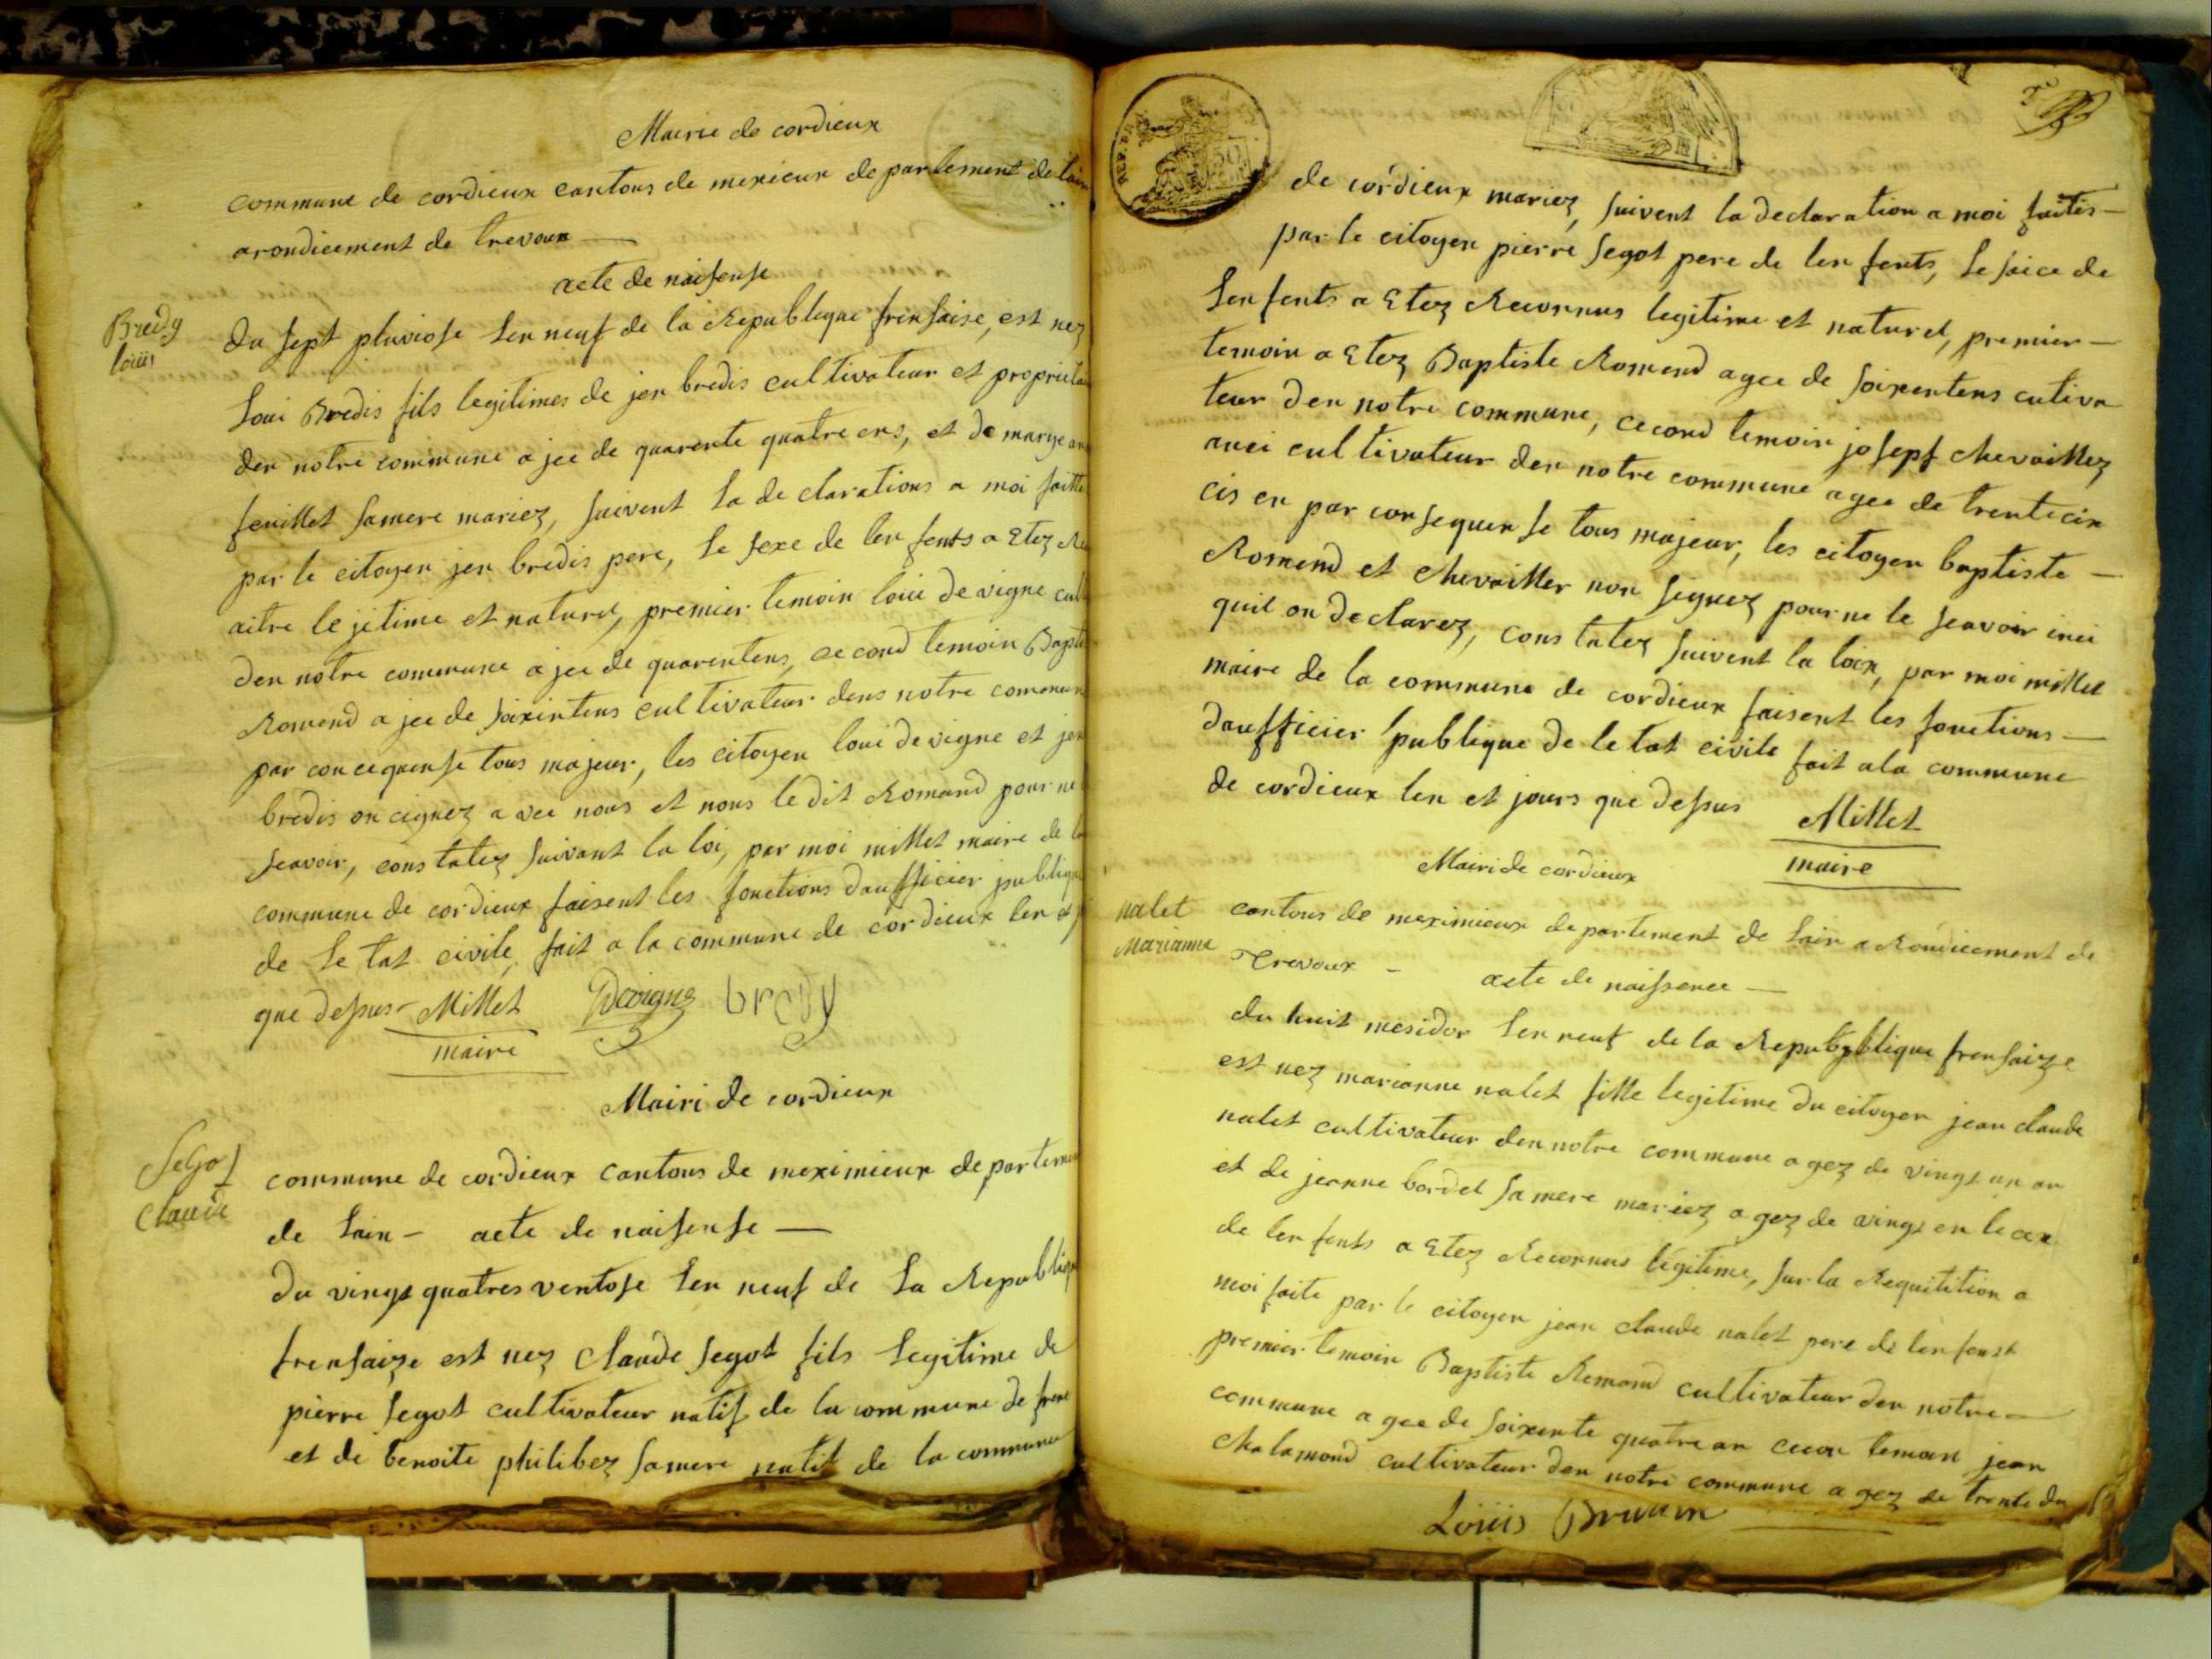 Mairie de cordieux
commune de cordieux cantons de mexieux departement de lain
arondicement de trevoux
acte de naisense
Bredy
louis
du sept pluviose len neuf de la Republique frensaise, est nez
loui Bredis fils legitimes de jen bredis cultivateur et proprieta
den notre commune a jee de quarente quatre ens, et de marye an
feuillet samere mariez, suivent la de clarations a moi faitte
par le citoyen jen bredis pere, le sexe de len fents a Etez Re
aitre le jetime et naturel, premier temoin loui de vigne cul
den notre commune a jee de quarentens, cecond temoin Bapti
Romend a jee de soixintens cultivateur dens notre commun
par concequense tous majeur, les citoyen loui devigne et jen
bredis on cignez a vec nous et nous le dit Romand pour ne
seavoir, constatez suivant la loi, par moi millet maire de la
commune de cordieux faisent les fonctions dauffieier publique
de le tat civile, fait a la commune de cordieux len et j
que dessus Millet Devigne bredy
maire
Mairi de cordieux
Segot
Claude
commune de cordieux cantons de meximieux departemen
de lain - acte de naisense
du vingt quatres ventose len neuf de la Republiqu
frensaize est nez Claude segot fils legitime de
pierre segot cultivateur natif de la commune de
et de benoite philibez samere natif de la commune
REP. FRA 50
de cordieux mariez, suivent la declaration a moi faites
par le citoyen pierre segot pere de len fents, le seice de
lenfents a Etez Reconnus legitime et naturel, premier
temoin a Etez Baptiste Romend agee de soixentens cutiva
teur den notre commune, cecond temoin josepf chevaillez
auci cultivateur den notre commune agee de trentecin
cis en par consequense tous majeur, les citoyen baptiste
Romend et chevailler non signez pour ne le seavoir inci
quil on declarez, constatez suivent la loix, par moi millet
maire de la commune de cordieux faisent les fonctions
daufficier publique de letat civile fait ala commune
de cordieux len et jours que dessus Millet
maire
Mairi de cordieux
nalet
Marianne
cantons de meximieux departement de lain a Rondicement de
Trevoux - acte de naissence
du huit mesidor len neuf de la Republique frensaize
est nez marianne nalet fille legitime du citoyen jean claude
nalet cultivateur den notre commune agez de vingt un an
et de jeanne bordel samere mariez agez de vingt en
de lenfents a Etez Reconnus legitime, sur la Requitition a
moi faite par le citoyen jean claude nalet pere de lenfent
premier temoin Baptiste Remand cultivateur den notre
commune agee de soixente quatre an cecon temoin jean
chalamond cultivateur den notre commune agez de trente du
Louis